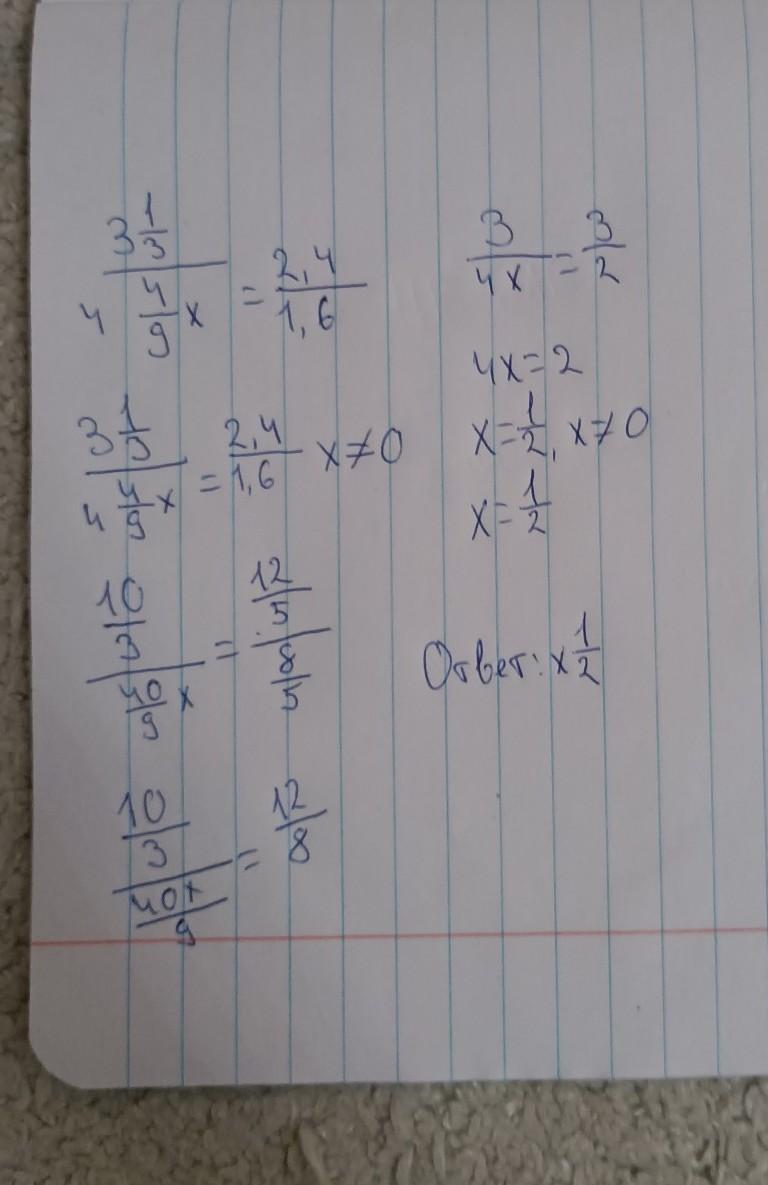 3 1/3 / 4 4/9 x = 2,4 / 1,6
3 1/3 / 4 4/9 x = 2,4 / 1,6 x ≠ 0
10/3 / 40/9 x = 12/5 / 8/5
10/3 / 40x/9 = 12/8
3/4x = 3/2
4x = 2
x = 1/2, x ≠ 0
x = 1/2
Ответ: x 1/2